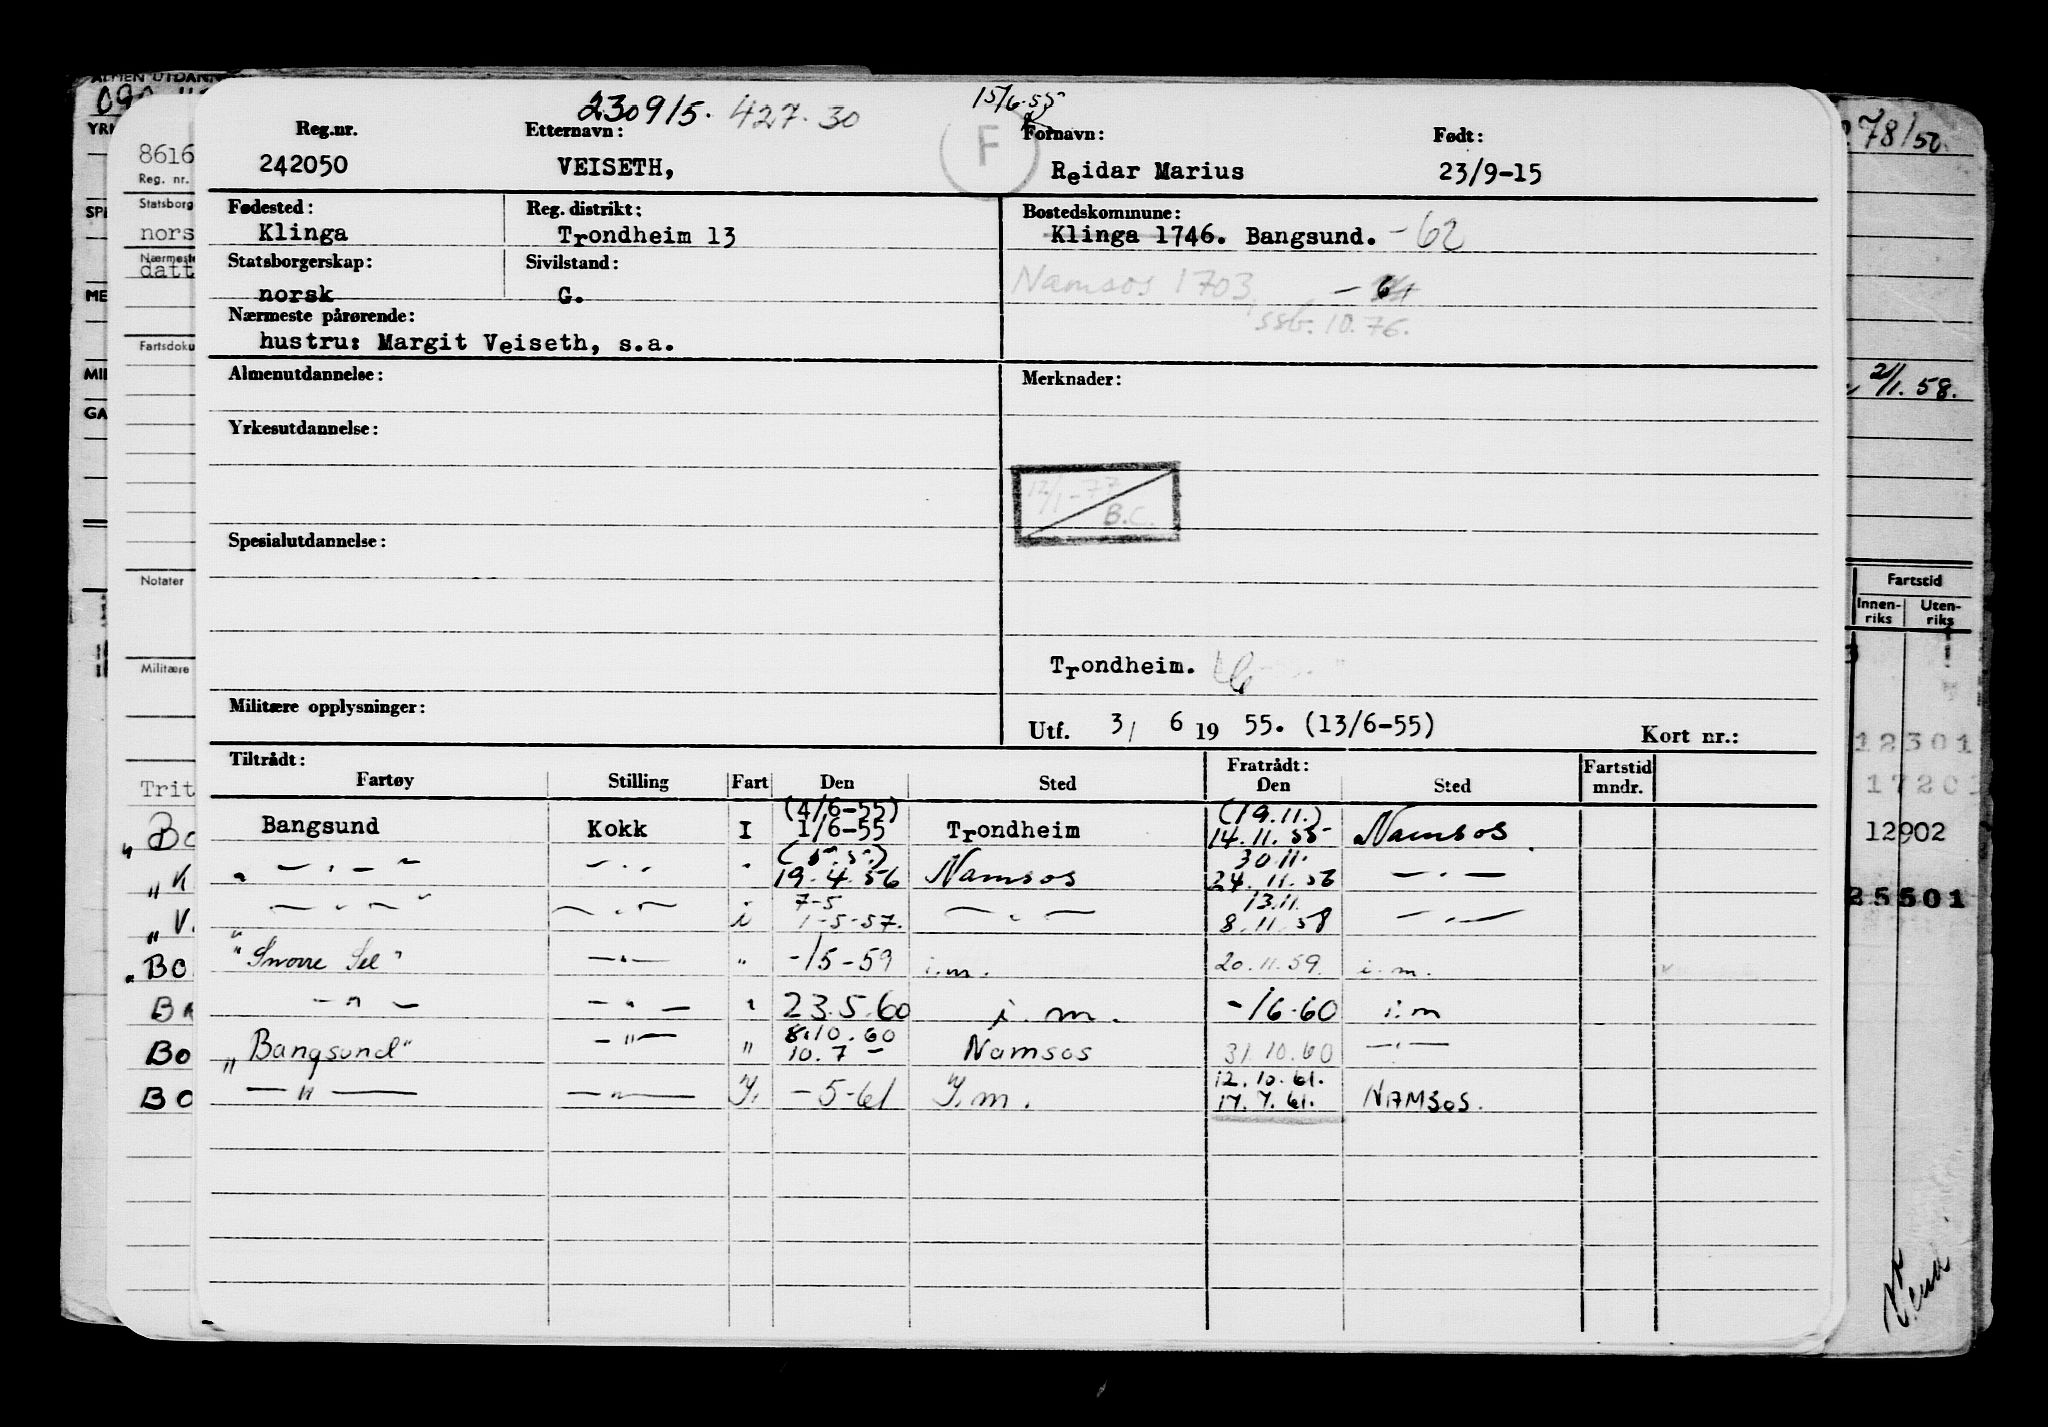 230915. 427.30 15/6.55
Reg.nr. Etternavn: F Fornavn: Født:
242050 VEISETH, Reidar Marius 23/9-15
Fødested: Reg. distrikt: Bostedskommune:
Klinga Trondheim 13 Klinga 1746. Bangsund. -62
Statsborgerskap: Sivilstand: Namsos 1703,
norsk G.
Nærmeste pårørende: ssb. 10.76.
hustru: Margit Veiseth, s.a.
Almenutdannelse: Merknader:
Yrkesutdannelse:
12/1-77
B.C.
Spesialutdannelse:
Trondheim.
Militære opplysninger:
Utf. 3/ 6 19 55. (13/6-55) Kort nr.:
Tiltrådt: Fratrådt: Fartstid
Fartøy Stilling Fart Den Sted Den Sted mndr.
(4/6-55) (19.11.)
Bangsund Kokk I 1/6-55 Trondheim 14.11.55 Namsos
(5.5.) 30.11.
" — . — " — . . " 19.4.56 Namsos 24.11.56 — . —
7-5 13.11.
— " — " — . — i 1-5-57. — " — 8.11.58 — . —
"Snorre Sel" — " — " -/5-59 i.m. 20.11.59. i.m.
— " — — " — " 23.5.60 i.m. -/6-60 i.m
8.10.60
"Bangsund" — " — " 10.7 — Namsos 31.10.60 — " —
12.10.61.
— " — — " — I. -5-61 I.m. 17.7.61. NAMSOS.
ALMEN UTDANN
YRK
SPE
ME
MIL
GA
8616
Reg. nr.
Statsborg
nors
Nærmeste
datt
Fartsdoku
Notater
Militære
Trit
Bo
"K
"V.
"BO
BO
BO
78/50.
2/1. 58.
Fartstid
Innen-riks Uten-riks
12301
17201
12902
25501